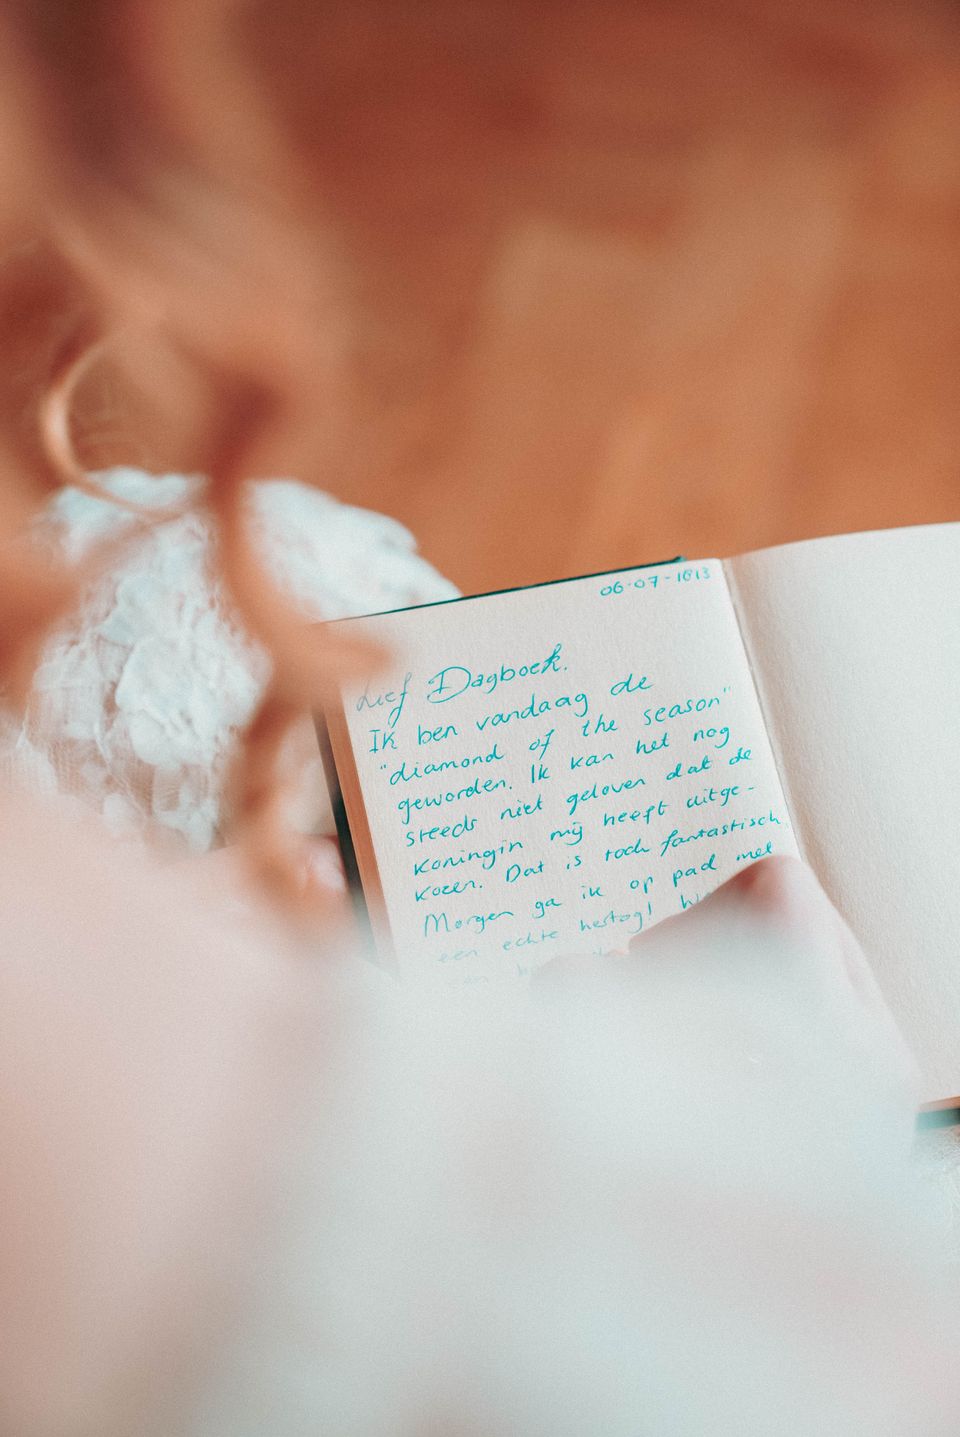 06-07-1813
Lief Dagboek.
Ik ben vandaag de
"diamond of the season"
geworden. Ik kan het nog
steeds niet geloven dat de
koningin mij heeft uitge-
kozen. Dat is toch fantastisch.
Morgen ga ik op pad met
een echte hertog!